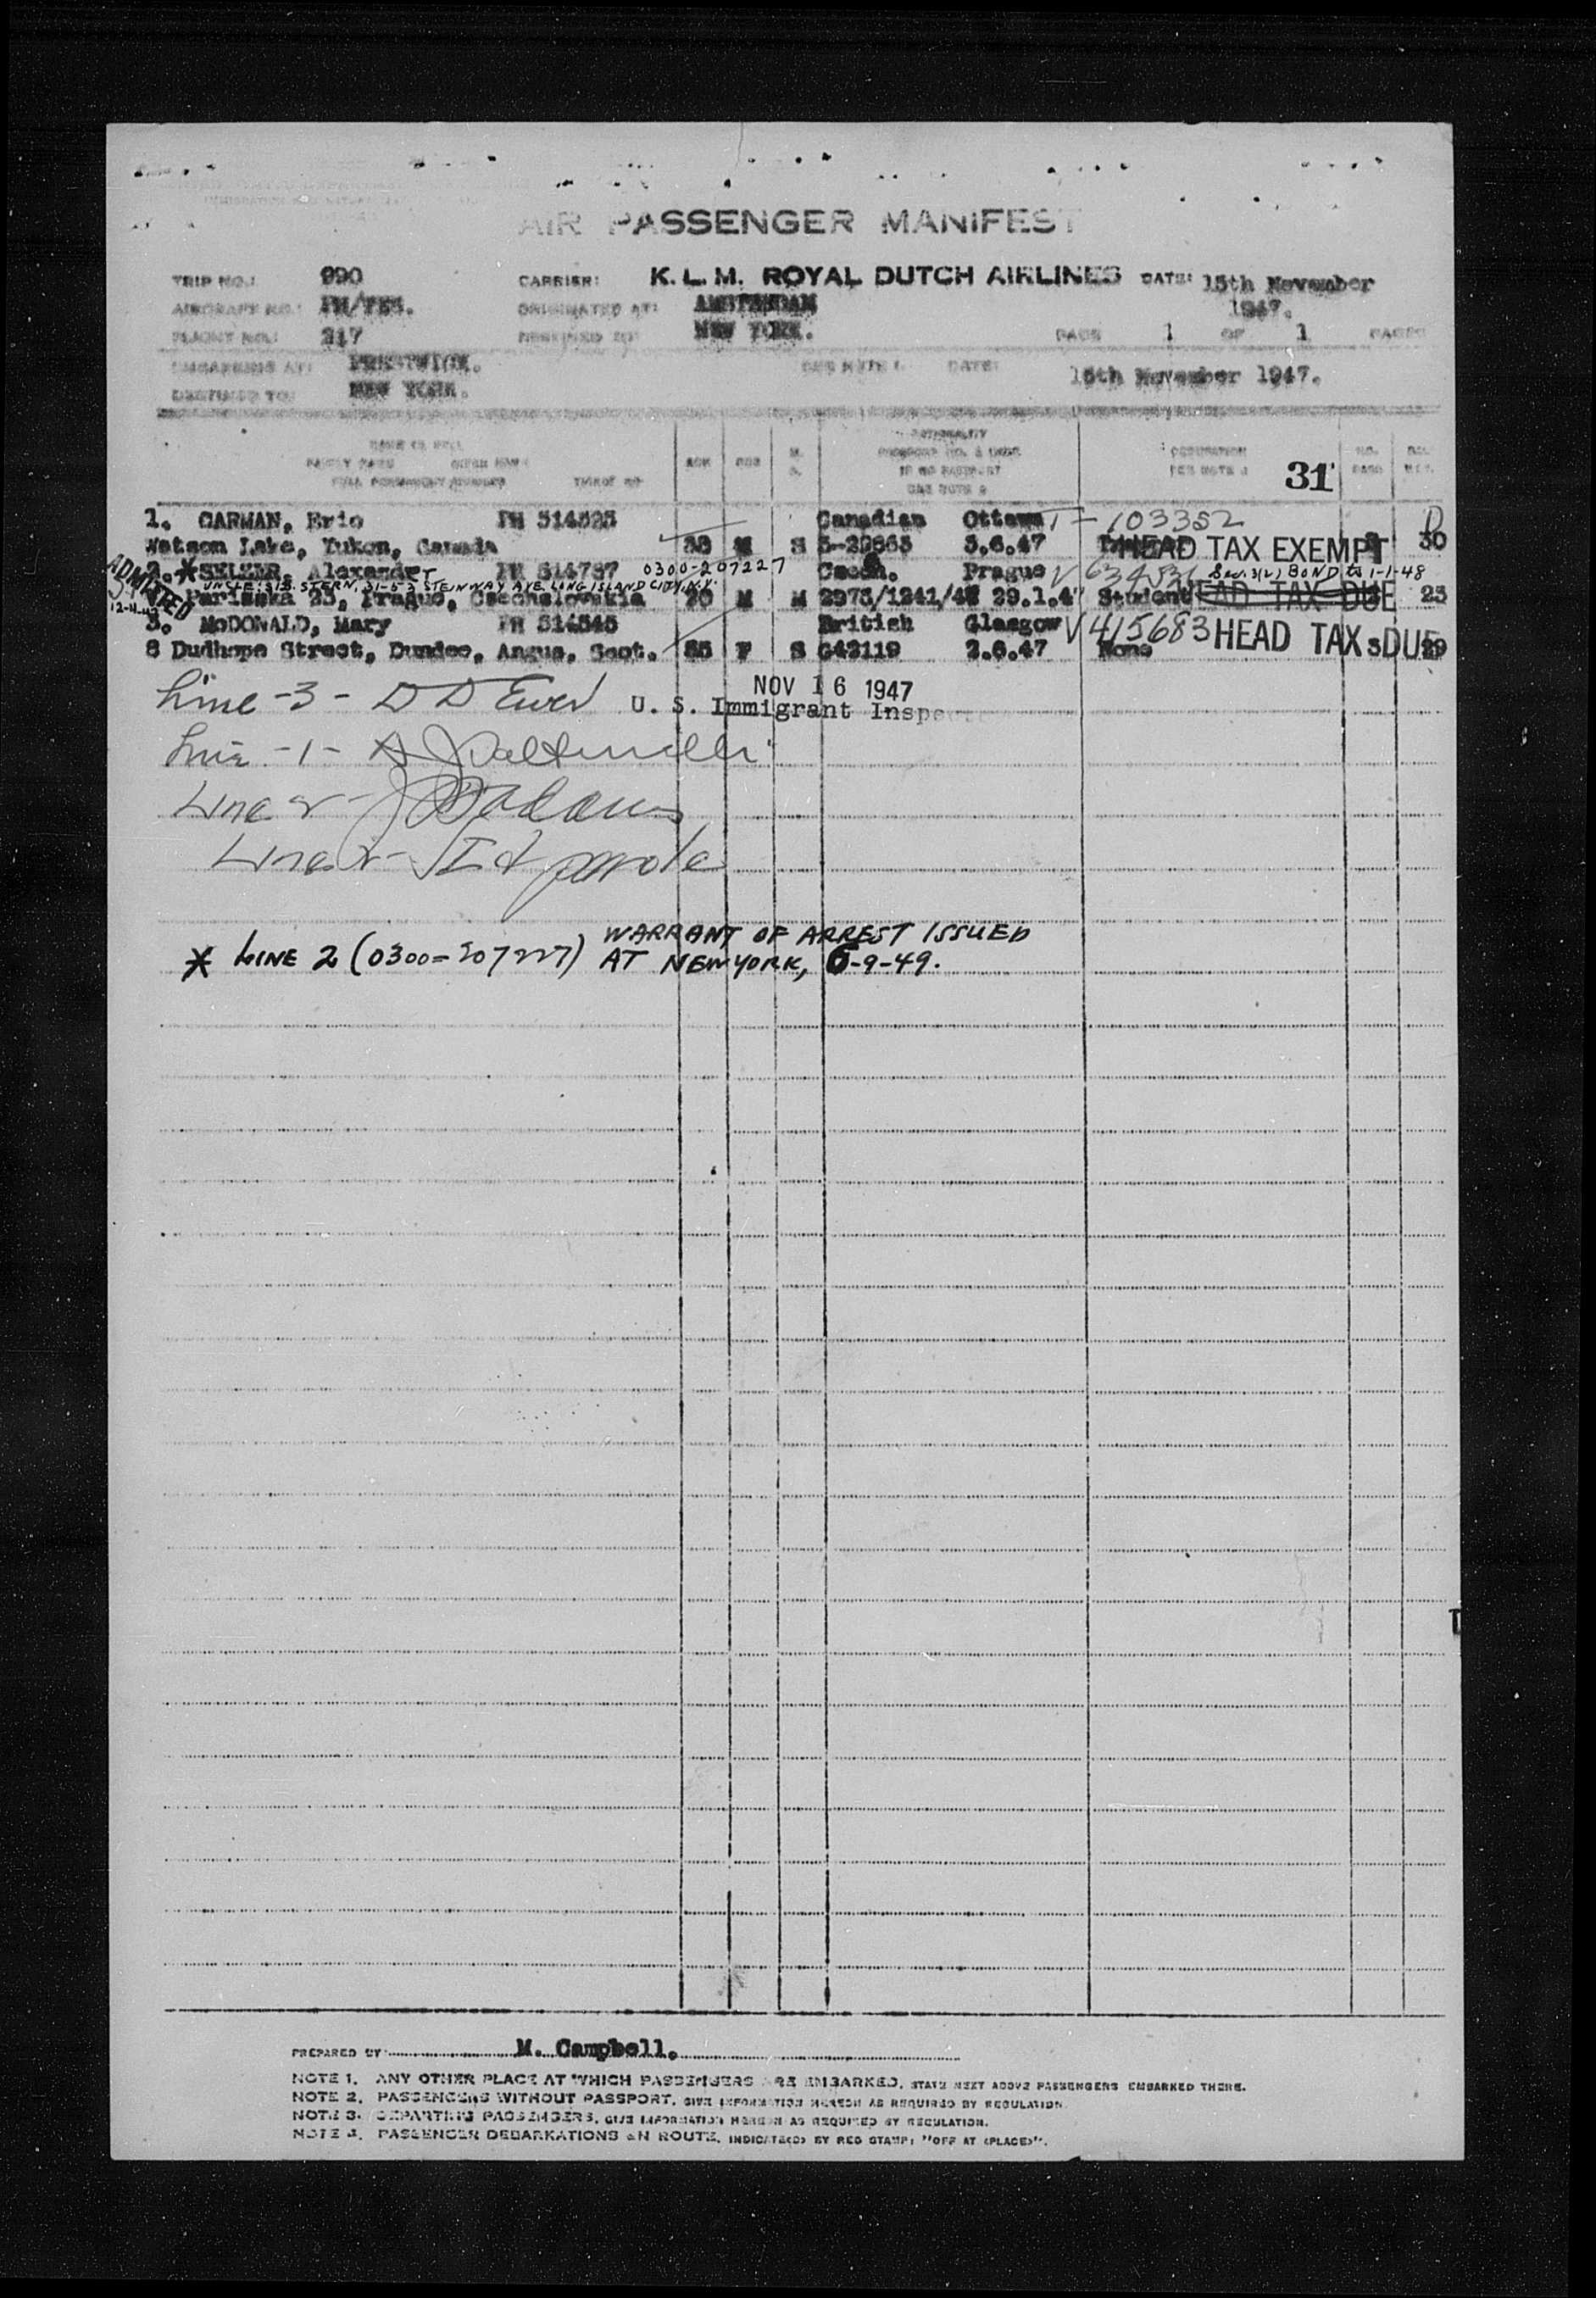 AIR PASSENGER MANIFEST
TRIP NO.: 990 CARRIER: K. L. M. ROYAL DUTCH AIRLINES DATE: 15th November 1947.
AIRCRAFT NO.: PH/TES. ORIGINATED AT: AMSTERDAM
FLIGHT NO.: 217 DESTINED TO: NEW YORK. PAGE 1 OF 1 PAGES
EMBARKING AT: PRESTWICK. SEE NOTE 1. DATE: 15th November 1947.
DESTINED TO: NEW YORK.
NAME IN FULL
FAMILY NAME GIVEN NAME
FULL PERMANENT ADDRESS TICKET NO
AGE SEX M. S.
NATIONALITY
PASSPORT NO. & DATE
IF NO PASSPORT
SEE NOTE 2
31
1. CARMAN, Eric PH 514525 Canadian Ottawa T-103352
Watson Lake, Yukon, Canada 38 M S 5-29865 3.6.47 HEAD TAX EXEMPT 30
ADMITTED
12-11-47
2. * SELZER, Alexander PH 514787 0300-207227 Czech. Prague V Sec. 3(2) BOND to 1-1-48
UNCLE: SIB. STERN, 31-53 STEINWAY AVE. LONG ISLAND CITY, N.Y.
Parizska 23, Prague, Czechslowakia 20 M M 2975/1241/47 29.1.47 Student HEAD TAX DUE 23
3. McDONALD, Mary PH 514545 British Glasgow V 415683 HEAD TAX DUE
8 Dudhope Street, Dundee, Angus, Scot. 55 F S C42119 2.6.47 None 3 29
Line -3- D D Ewer
NOV 16 1947
U. S. Immigrant Inspe
Line -1-
Line 2-
Line 2- parole
* LINE 2 (0300-207227) WARRANT OF ARREST ISSUED
AT NEW YORK, 6-9-49.
PREPARED BY M. Campbell.
NOTE 1. ANY OTHER PLACE AT WHICH PASSENGERS ARE EMBARKED, STATE NEXT ABOVE PASSENGERS EMBARKED THERE.
NOTE 2. PASSENGERS WITHOUT PASSPORT, GIVE INFORMATION HEREON AS REQUIRED BY REGULATION.
NOTE 3. DEPARTING PASSENGERS, GIVE INFORMATION HEREON AS REQUIRED BY REGULATION.
NOTE 4. PASSENGER DEBARKATIONS EN ROUTE, INDICATE(D) BY RED STAMP: "OFF AT (PLACE)".